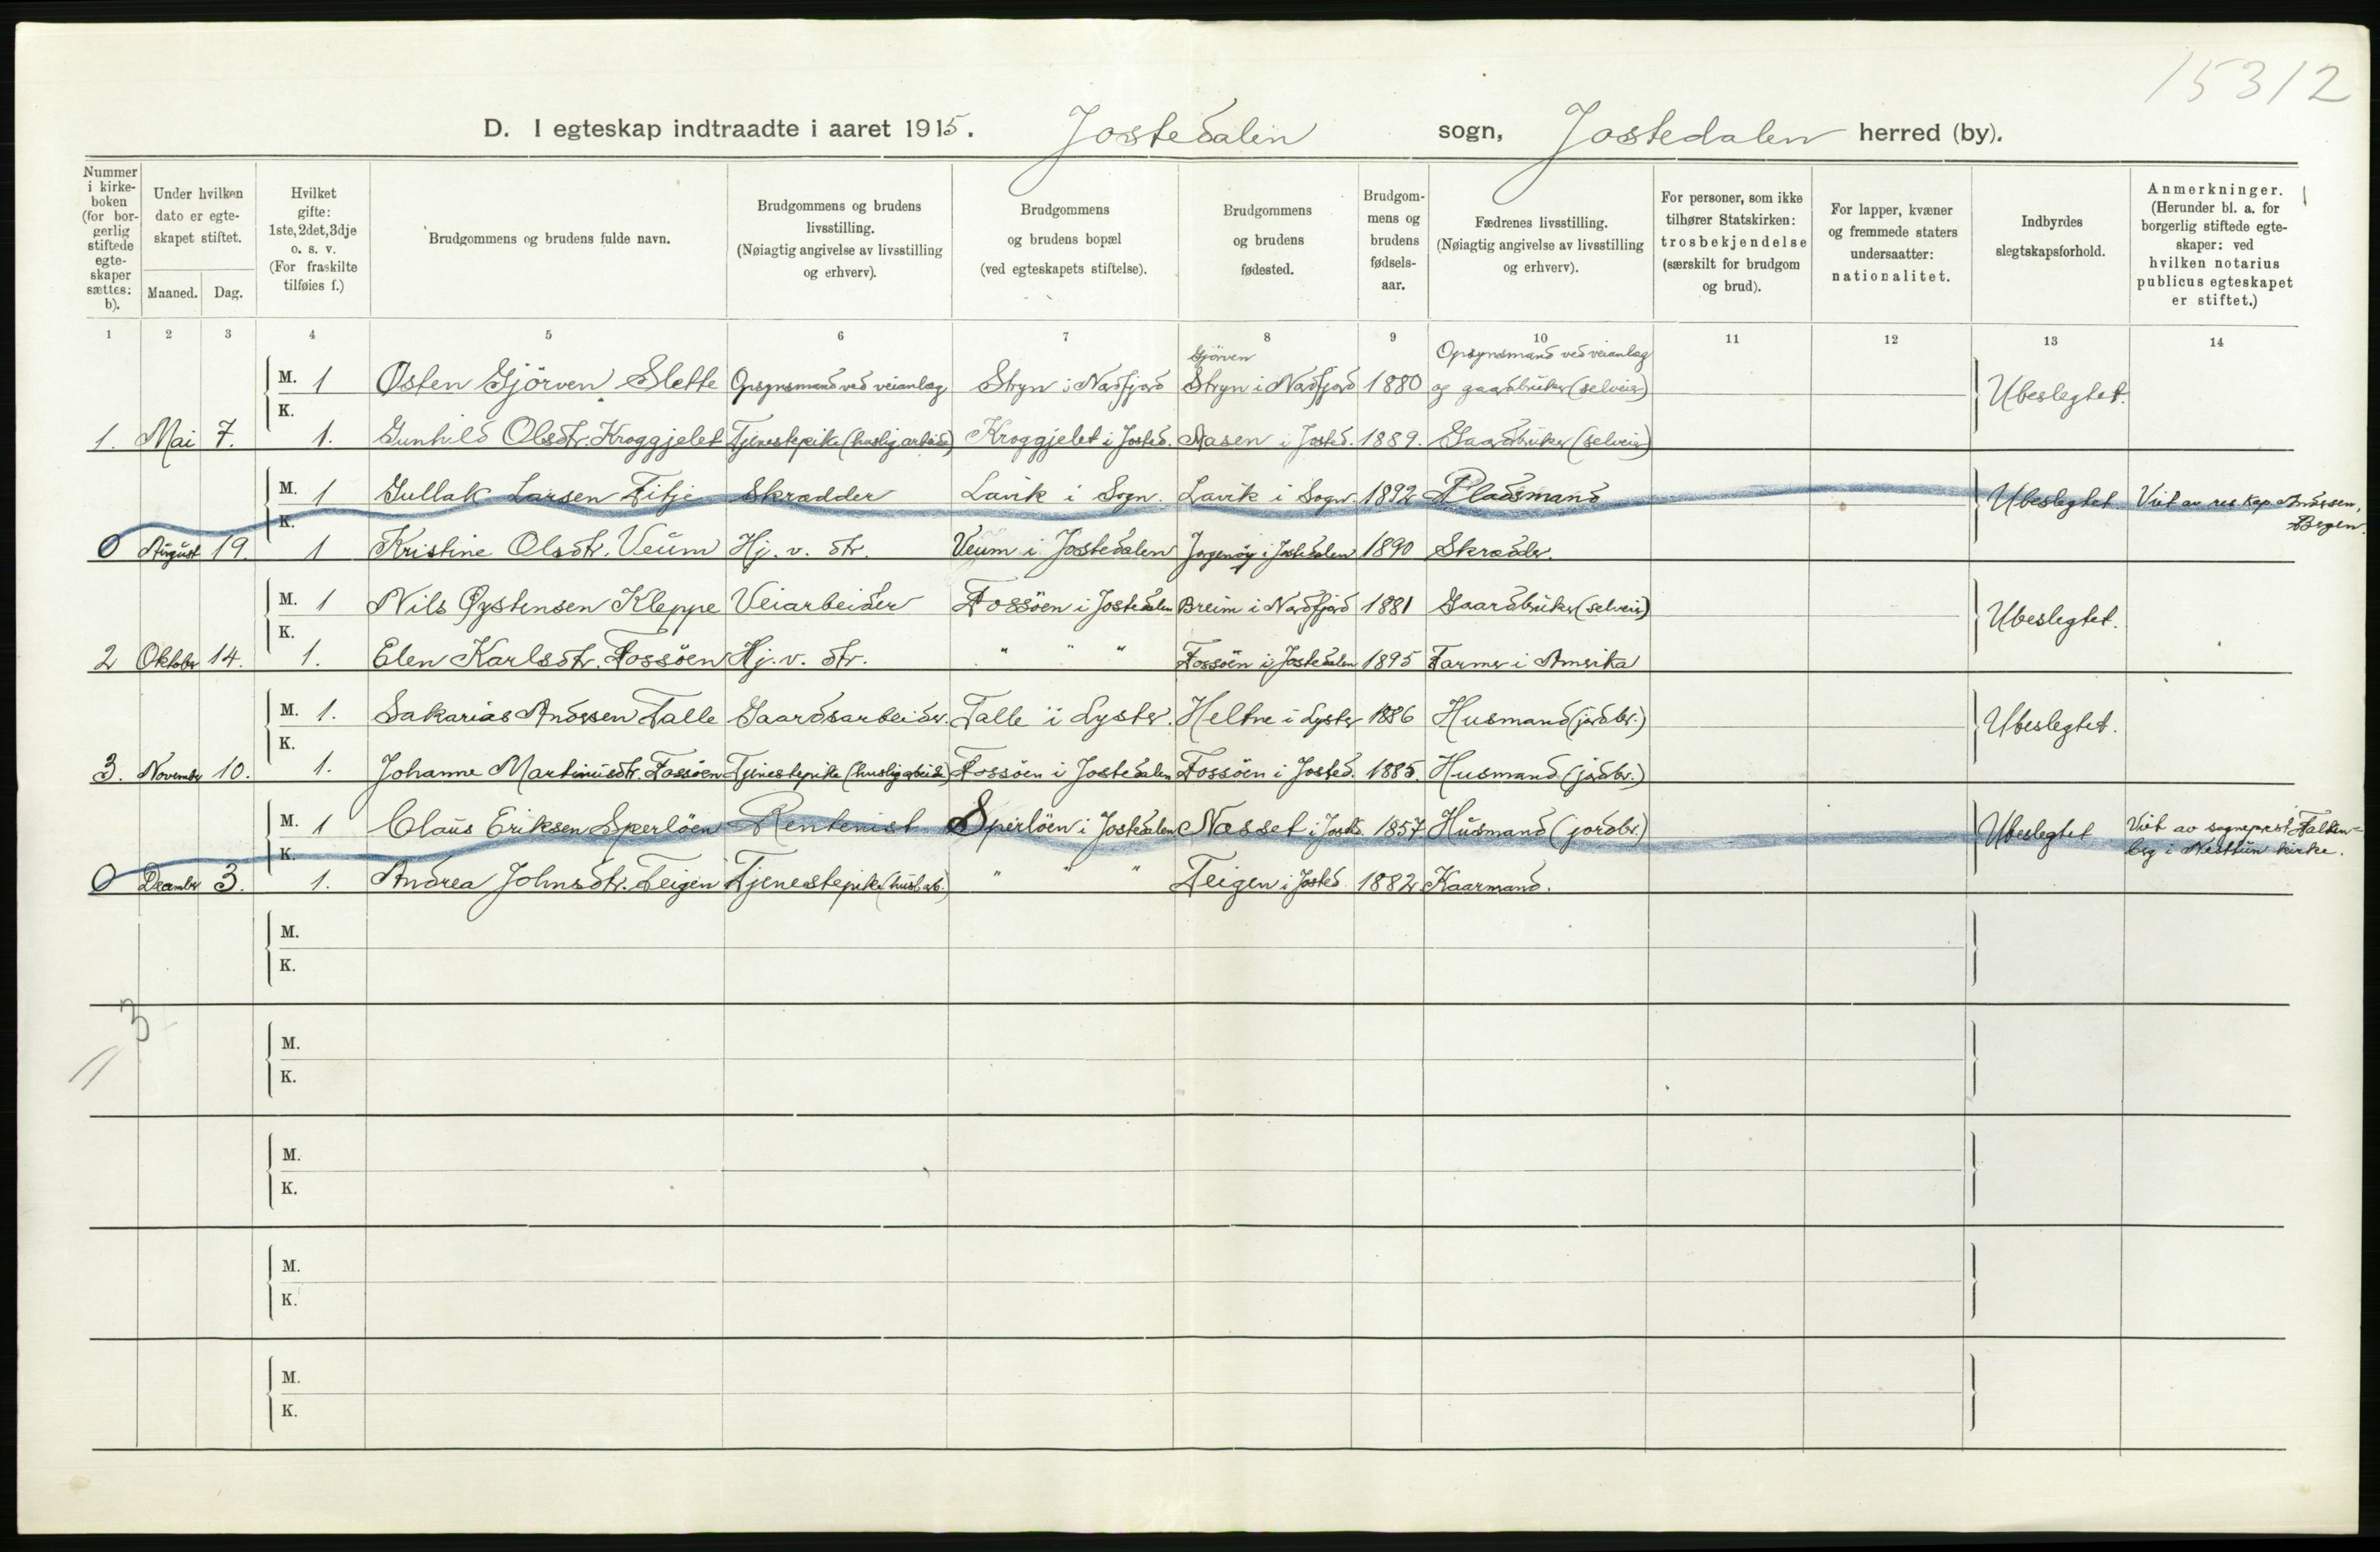 15312
D. I egteskap indtraadte i aaret 1915. Jostedalen sogn, Jostedalen herred (by).
Nummer i kirke-boken (for bor-gerlig stiftede egte-skaper sættes: b).
Under hvilken dato er egte-skapet stiftet.
Maaned. Dag.
Hvilket gifte: 1ste, 2det, 3dje o. s. v. (For fraskilte tilføies f.)
Brudgommens og brudens fulde navn.
Brudgommens og brudens livsstilling. (Nøiagtig angivelse av livsstilling og erhverv).
Brudgommens og brudens bopæl (ved egteskapets stiftelse).
Brudgommens og brudens fødested.
Brudgom-mens og brudens fødsels-aar.
Fædrenes livsstilling. (Nøiagtig angivelse av livsstilling og erhverv).
For personer, som ikke tilhører Statskirken: trosbekjendelse (særskilt for brudgom og brud).
For lapper, kvæner og fremmede staters undersaatter: nationalitet.
Indbyrdes slegtskapsforhold.
Anmerkninger. (Herunder bl. a. for borgerlig stiftede egte-skaper: ved hvilken notarius publicus egteskapet er stiftet.)
1 2 3 4 5 6 7 8 9 10 11 12 13 14
Gjörven Opsynsmand ved veianlag
M. 1 Østen Gjörven Slette Opsynsmand ved veianlag Stryn i Nordfjord Stryn i Nordfjord 1880 og gaardbruker (selveier) Ubeslegtet.
K.
1. Mai 7. 1. Gunhild Olsdtr. Kroggjelet Tjenestepike (huslig arbeide) Kroggjelet i Josted. Aasen i Josted. 1889. Gaardbruker (selveier)
M. 1 Gullak Larsen Fitje Skrædder Lavik i Sogn. Lavik i Sogn 1892 Pladsmand Ubeslegtet. Viet av res kap. Andersen, Bergen.
K.
0 August 19. 1 Kristine Olsdtr. Veum Hj. v. dtr. Veum i Jostedalen i Jostedalen 1890 Skrædder.
M. 1 Nils Øystensen Kleppe Veiarbeider Fossöen i Jostedalen Breim i Nordfjord 1881 Gaardbruker (selveier) Ubeslegtet.
K.
2 Oktober 14. 1. Elen Karlsdtr. Fossöen Hj. v. dtr. " " " Fossöen i Jostedalen 1895 Farmer i Amerika
M. 1. Sakarias Andersen Talle Gaardsarbeider. Talle i Lyster. Heltne i Lyster 1886 Husmand (jordbr.) Ubeslegtet.
K.
3. November 10. 1. Johanne Martinusdtr. Fossöen Tjenestepike (huslig arbeide) Fossöen i Jostedalen Fossöen i Josted. 1885. Husmand (jordbr.)
M. 1 Claus Eriksen Sperlöen Rentenist Sperlöen i Jostedalen Næsset i Josted. 1857 Husmand (jordbr.) Ubeslegtet Viet av sogneprest Falken-
K. berg i Nesttun kirke.
0 December 3. 1. Andrea Johnsdtr. Teigen Tjenestepike (husl. arb.) " " " Teigen i Josted. 1882 Kaarmand.
M.
K.
3
M.
K.
M.
K.
M.
K.
M.
K.